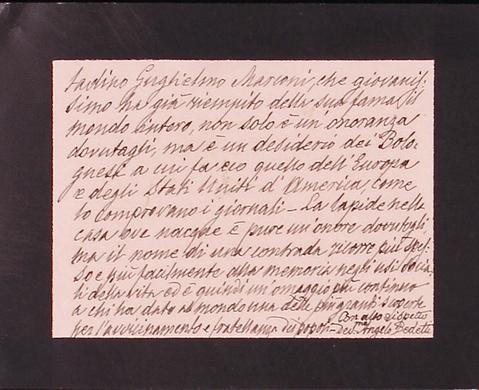 tadino Guglielmo Marconi, che giovanis-
simo ha già riempito della sua fama il
mondo intero, non solo è un'onoranza
dovutagli, ma è un desiderio dei Bolo-
gnesi a cui fa eco quello dell'Europa
e degli Stati Uniti d'America, come
lo comprovano i giornali - La lapide nella
casa ove nacque è pure un onore dovutogli,
ma il nome di una contrada ricorre più spes-
so e più facilmente alla memoria negli usi socia-
li della vita ed è quindi un omaggio più continuo
a chi ha dato al mondo una delle più grandi scoperte
per l'avvicinamento e fratellanza dei popoli -
Con alto rispetto
Dev. Angelo